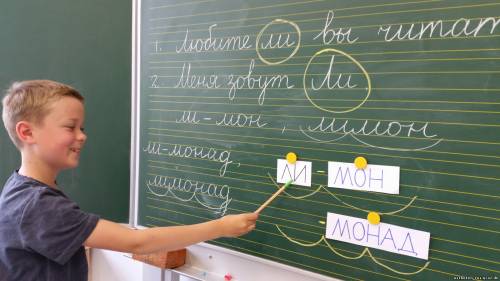 1. Любите ли вы читат
2. Меня зовут Ли
ли-мон, лимон
ли-монад,
лимонад
ЛИ - МОН
- МОНАД